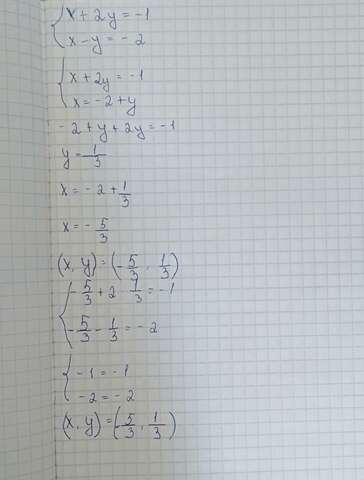 { x + 2y = -1
x - y = - 2
{ x + 2y = -1
x = -2 + y
- 2 + y + 2y = -1
y = 1/3
x = - 2 + 1/3
x = - 5/3
(x, y) = (- 5/3, 1/3)
{ - 5/3 + 2 · 1/3 = -1
- 5/3 - 1/3 = - 2
{ - 1 = - 1
- 2 = - 2
(x, y) = (- 5/3, 1/3)